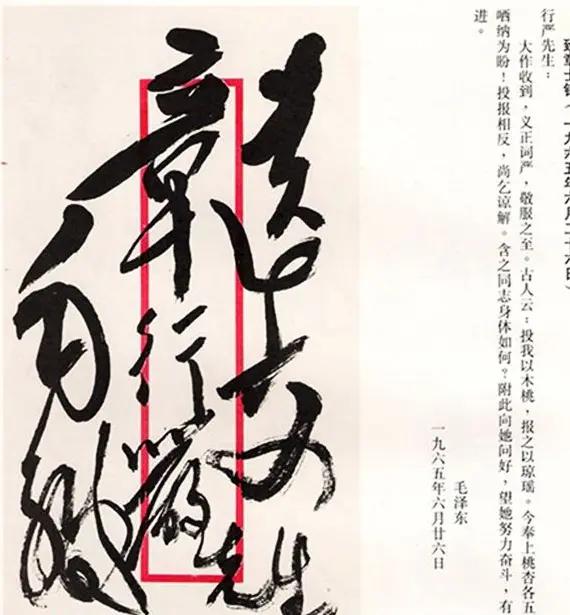 致章士钊（一九六五年六月二十六日）
行严先生：
大作收到，义正词严，敬服之至。古人云：投我以木桃，报之以琼瑶。今奉上桃杏各五
哂纳为盼！投报相反，尚乞谅解。含之同志身体如何？附此向她问好，望她努力奋斗，有
进。
毛泽东
一九六五年六月廿六日
送交
章行嚴先生
毛缄